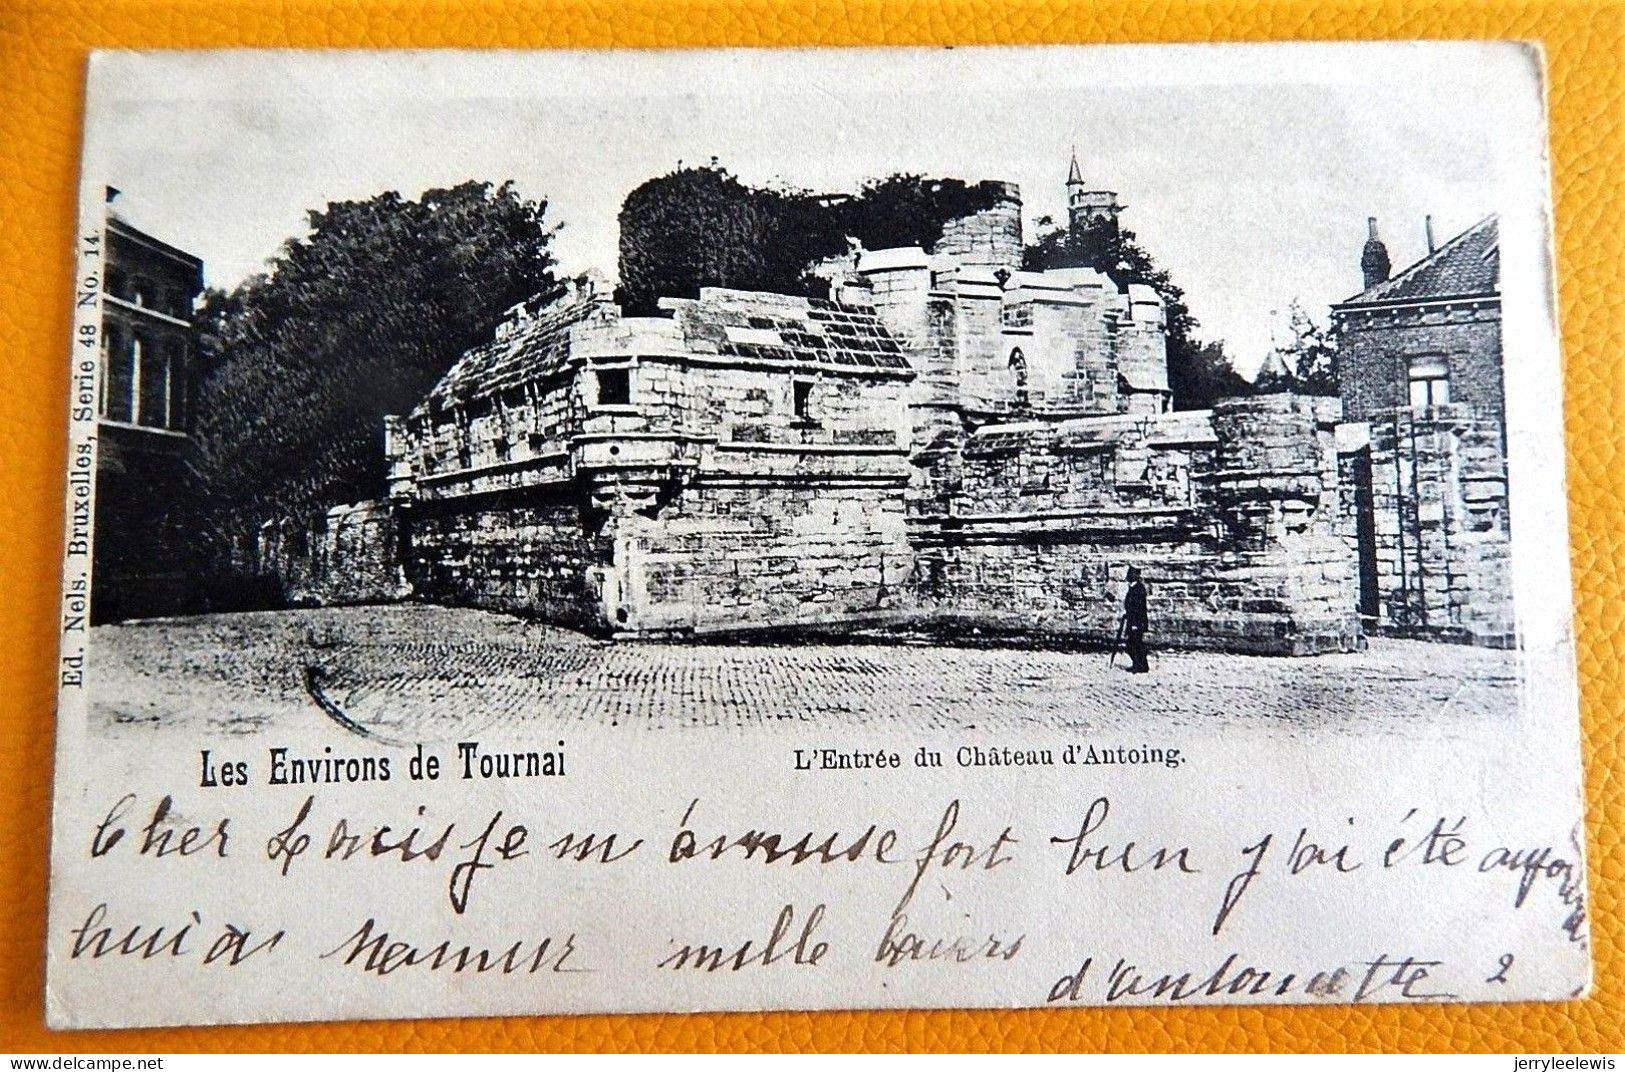 Ed. Nels. Bruxelles, Serie 48 No. 14.
Les Environs de Tournai
L'Entrée du Château d'Antoing.
Cher Louis je m'amuse fort bien j'ai été aujourd
hui à Namur mille baisers
d'Antoinette 2
jerryleelewis